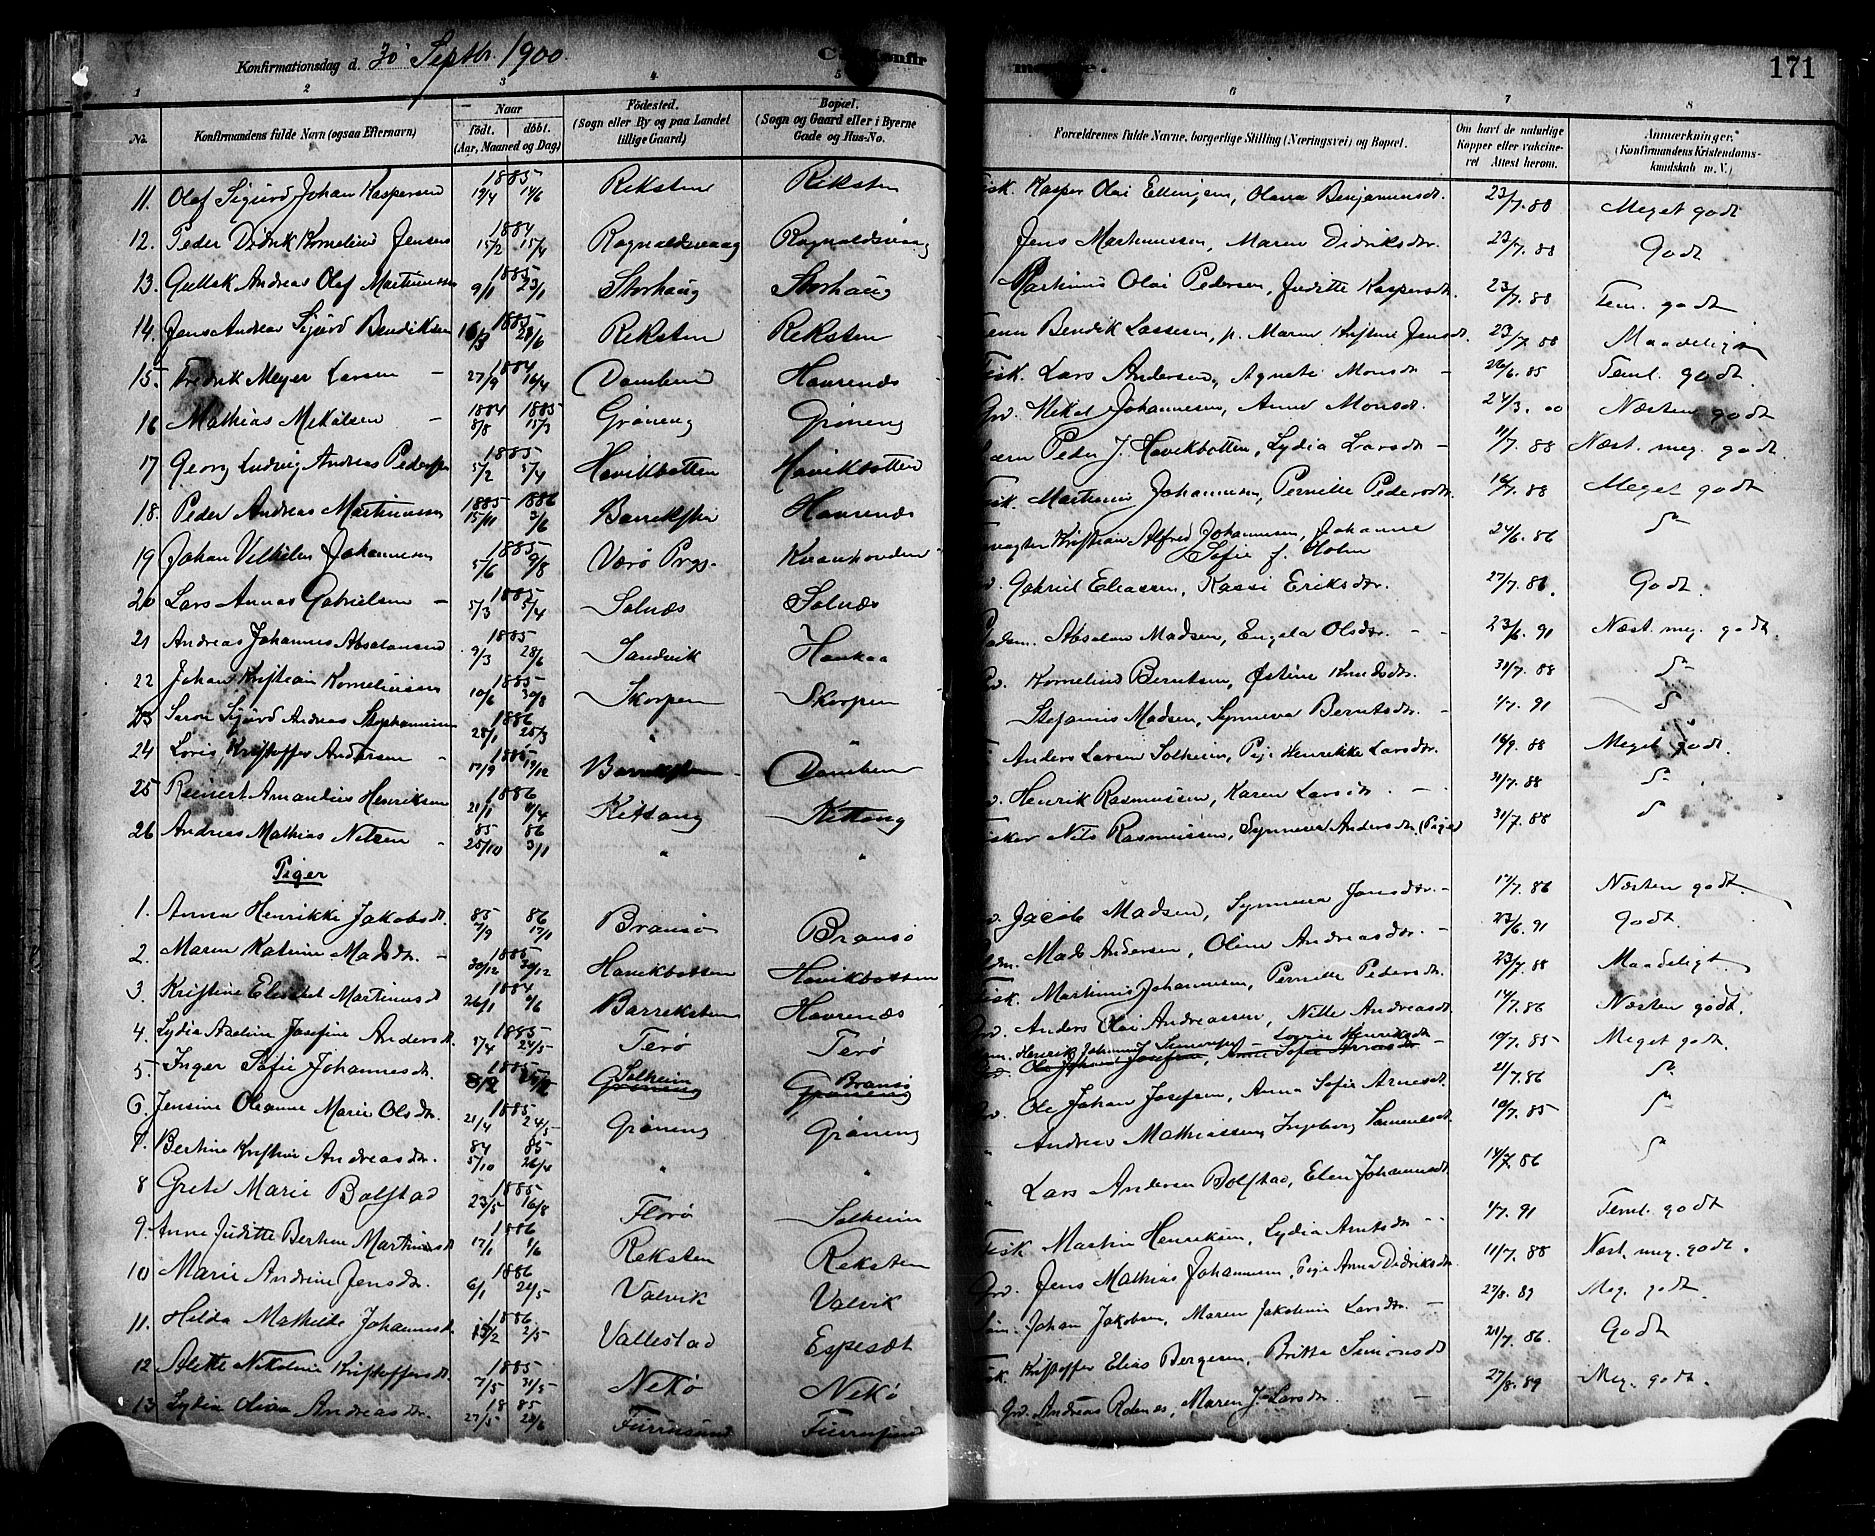 Konfirmationsdag d. 30 Septbr. 1900. C. Konfirmerede. 171
1 2 3 4 5 6 7 8
No. Konfirmandens fulde Navn (ogsaa Efternavn) Naar födt. döbt. (Aar, Maaned og Dag) Födested. (Sogn eller By og paa Landet tillige Gaard) Bopæl. (Sogn og Gaard eller i Byerne Gade og Hus-No. Forældrenes fulde Navne, borgerlige Stilling (Næringsvei) og Bopæl. Om havt de naturlige Kopper eller vaksineret Attest herom. Anmærkninger. (Konfirmandens Kristendomskundskab m. V.)
11. Olaf Sigurd Johan Kaspersen 1885 19/4 14/6 Reksten Reksten Fisk. Kasper Olai Ellingsen, Olava Benjaminsdr. 23/7. 88 Meget godt
12. Peder Didrik Kornelius Jensen 1884 15/2 15/4 Rognaldsvaag Rognaldsvaag Jens Martinussen, Maren Didriksdr. 23/7. 88 Godt
13. Gullak Andreas Olaf Martinussen 1885 9/1 23/1 Storhaug Storhaug Martinus Olai Pedersen, Juditte Kaspersdr. 23/7. 88 Teml. godt
14. Jens Andreas Sigurd Bendiksen 1885 16/3 28/6 Reksten Reksten Bendik Lassesen, p. Maren Kristine Jensdr. 23/7 88 Maadeligt
15. Fredrik Meyer Larsen 1884 27/9 16/4 Danbeu Havrenes Fisk. Lars Andersen, Agnete Monsdr. 26/6. 85 Teml. godt.
16 Mathias Mikalsen 1884 1885 8/8 15/3 Grøneng Grøneng Grd. Mikal Johannesen, Anne Monsdr. 24/3. 00 Næsten godt
17 Georg Ludvig Andreas Pedersen 1885 5/2 5/4 Havikbotten Havikbotten Peder J. Havikbotten, Lydia Larsdr 11/7. 88 Næst. meg. godt.
18. Peder Andreas Martinussen 1885 1886 15/11 /6 Bareksten Havrenes Fisk. Martinus Johannesen, Pernille Pedersdr. 16/7. 88 Meget godt
19 Johan Vilhelm Johannesen 1885 5/6 9/8 Værø Prgj. Kvanhovden Kristian Alfred Johannesen, Johanne 24/6. 86
Sofie f. Holm
20 Lars Annas Gabrielsen 1885 5/3 5/4 Solnæs Solnæs Gabriel Eliassen, Kassi Eriksdr. 27/7. 86. Godt.
21 Andreas Johannes Absalonsen 1885 9/3 28/6 Sandvik Haukaa Absalon Madsen, Engela Olsdr. 23/6. 91 Næst. meg. godt.
22 Johan Kristian Korneliussen 1885 10/6 30/8 Skorpen Skorpen Kornelius Berntsen, Østine Knudsdr. 31/7. 88
23 Sigurd Andreas Stephanussen 1886 28/1 25/3 " " Stefanus Madsen, Synneva Berntsdr. 1/7. 91
24 Lovis Kristoffer Andersen 17/9 19/12 Barekstenen Danbeu Anders Larsen Solheim, Pige Henrikke Larsdr. 14/9. 88 Meget godt.
25 Reinert Amandius Henriksen 1886 21/1 11/4 Kittang Kittang Henrik Rasmussen, Karen Larsdr. 31/7. 88
26 Andreas Mathias Nilsen 85 86 25/10 3/1 " " Fisker Nils Rasmussen, Synneva Andersdr. (Pige) 31/7. 88
Piger
1. Anna Henrikke Jakobsdr. 85 86 /9 17/1 Bransø Bransø Jacob Madsen, Synneva Jonsdr. 17/7. 86 Næsten godt.
2. Maren Katrine Madsdr. 1885 20/12 20/12 Havikbotten Havikbotten Mads Andersen, Oline Andreasdr. 23/6. 91 Godt
3. Kristine Elisabet Martinusd. 1884 26/1 /6 Barreksten Havrenæs Fisk. Martinus Johannesen, Pernille Pedersdr. 23/7 88 Maadeligt.
4. Lydia Adeline Josefine Andersd. 1885 5/4 24/5 Terø Terø Grd. Anders Olai Andreassen, Nille Andreasdr. 14/7. 86 Næsten godt.
5. Inger Sofie Johannesdr. 1885 Solheim Grøneng Bransø Grøneng Henrik Johannes Simonsen - Lovise Henriksdr. Ole Johan Josefsen Anna Sofie Arnesdr 10/7. 85 Meget godt.
6. Jensine Oleanne Marie Olsdr. 1885 21/4 24/5 Grøneng Grøneng Grd. Ole Johan Josefsen, Anna Sofie Arnesdr. 21/7. 86
7. Bertine Kristine Andreasdr. 84 85 5/10 26/4 " " Andreas Mathiassen, Ingeborg Samuelsdr. 10/7. 85
8 Grete Marie Bolstad 1885 23/5 16/8 Florø Solheim Lars Andersen Bolstad, Elen Johannesdr. 14/7. 86
9. Anne Juditte Berthine Martinsd. 1886 17/1 /6 Reksten Reksten Fisk. Martin Henriksen, Lydia Arntsdr. 1/7. 91 Teml. godt
10 Marie Andrine Jensdr. 1886 6/1 24/5 Valvik Valvik Grd. Jens Mathias Johannesen, Pige Anna Didriksdr. 11/7. 88 Næst. meg. godt.
11. Hilda Mathilde Johannesd. 1886 15/2 2/5 Vallestad Espesæt Johan Jakobsen, Maren Jakobine Larsdr. 27/8. 89 Meg. godt.
12 Alette Nikoline Kristoffersd. 1885 7/5 31/5 Nekø Nekø Kristoffer Elias Bergesen, Britta Simonsdr. 21/7. 86. Godt
13 Lydia Olina Andreasdr. 1885 27/5 28/6 Furrusund Furrusund Grd. Andreas Rotenes, Maren J. Larsdr. 27/8. 89 Meg. godt.